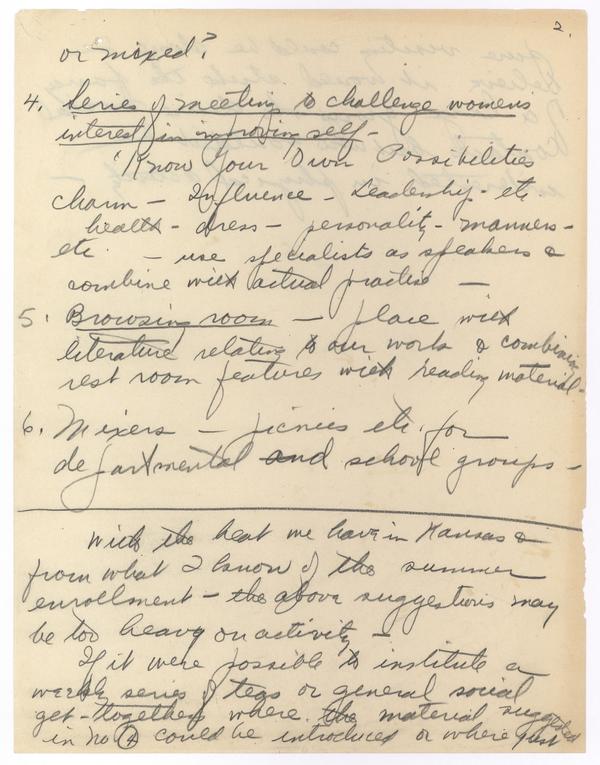 2.
or mixed?
4. Series of meeting to challenge womens
interest in improving self -
"Know Your Own Possibilities
Charm - Influence - Leadership - etc
health - dress - personality - manners -
etc. - use specialists as speakers &
combine with actual practise -
5. Browsing room - place with
literature relating to our work & combining
rest room features with reading material -
6. Mixers - picnics etc. for
departmental and school groups -
With the heat we have in Kansas &
from what I know of the summer
enrollment - the above suggestions may
be too heavy on activity -
If it were possible to institute a
weekly series of teas or general social
get-togethers where the material suggested
in no 4 could be introduced or where just